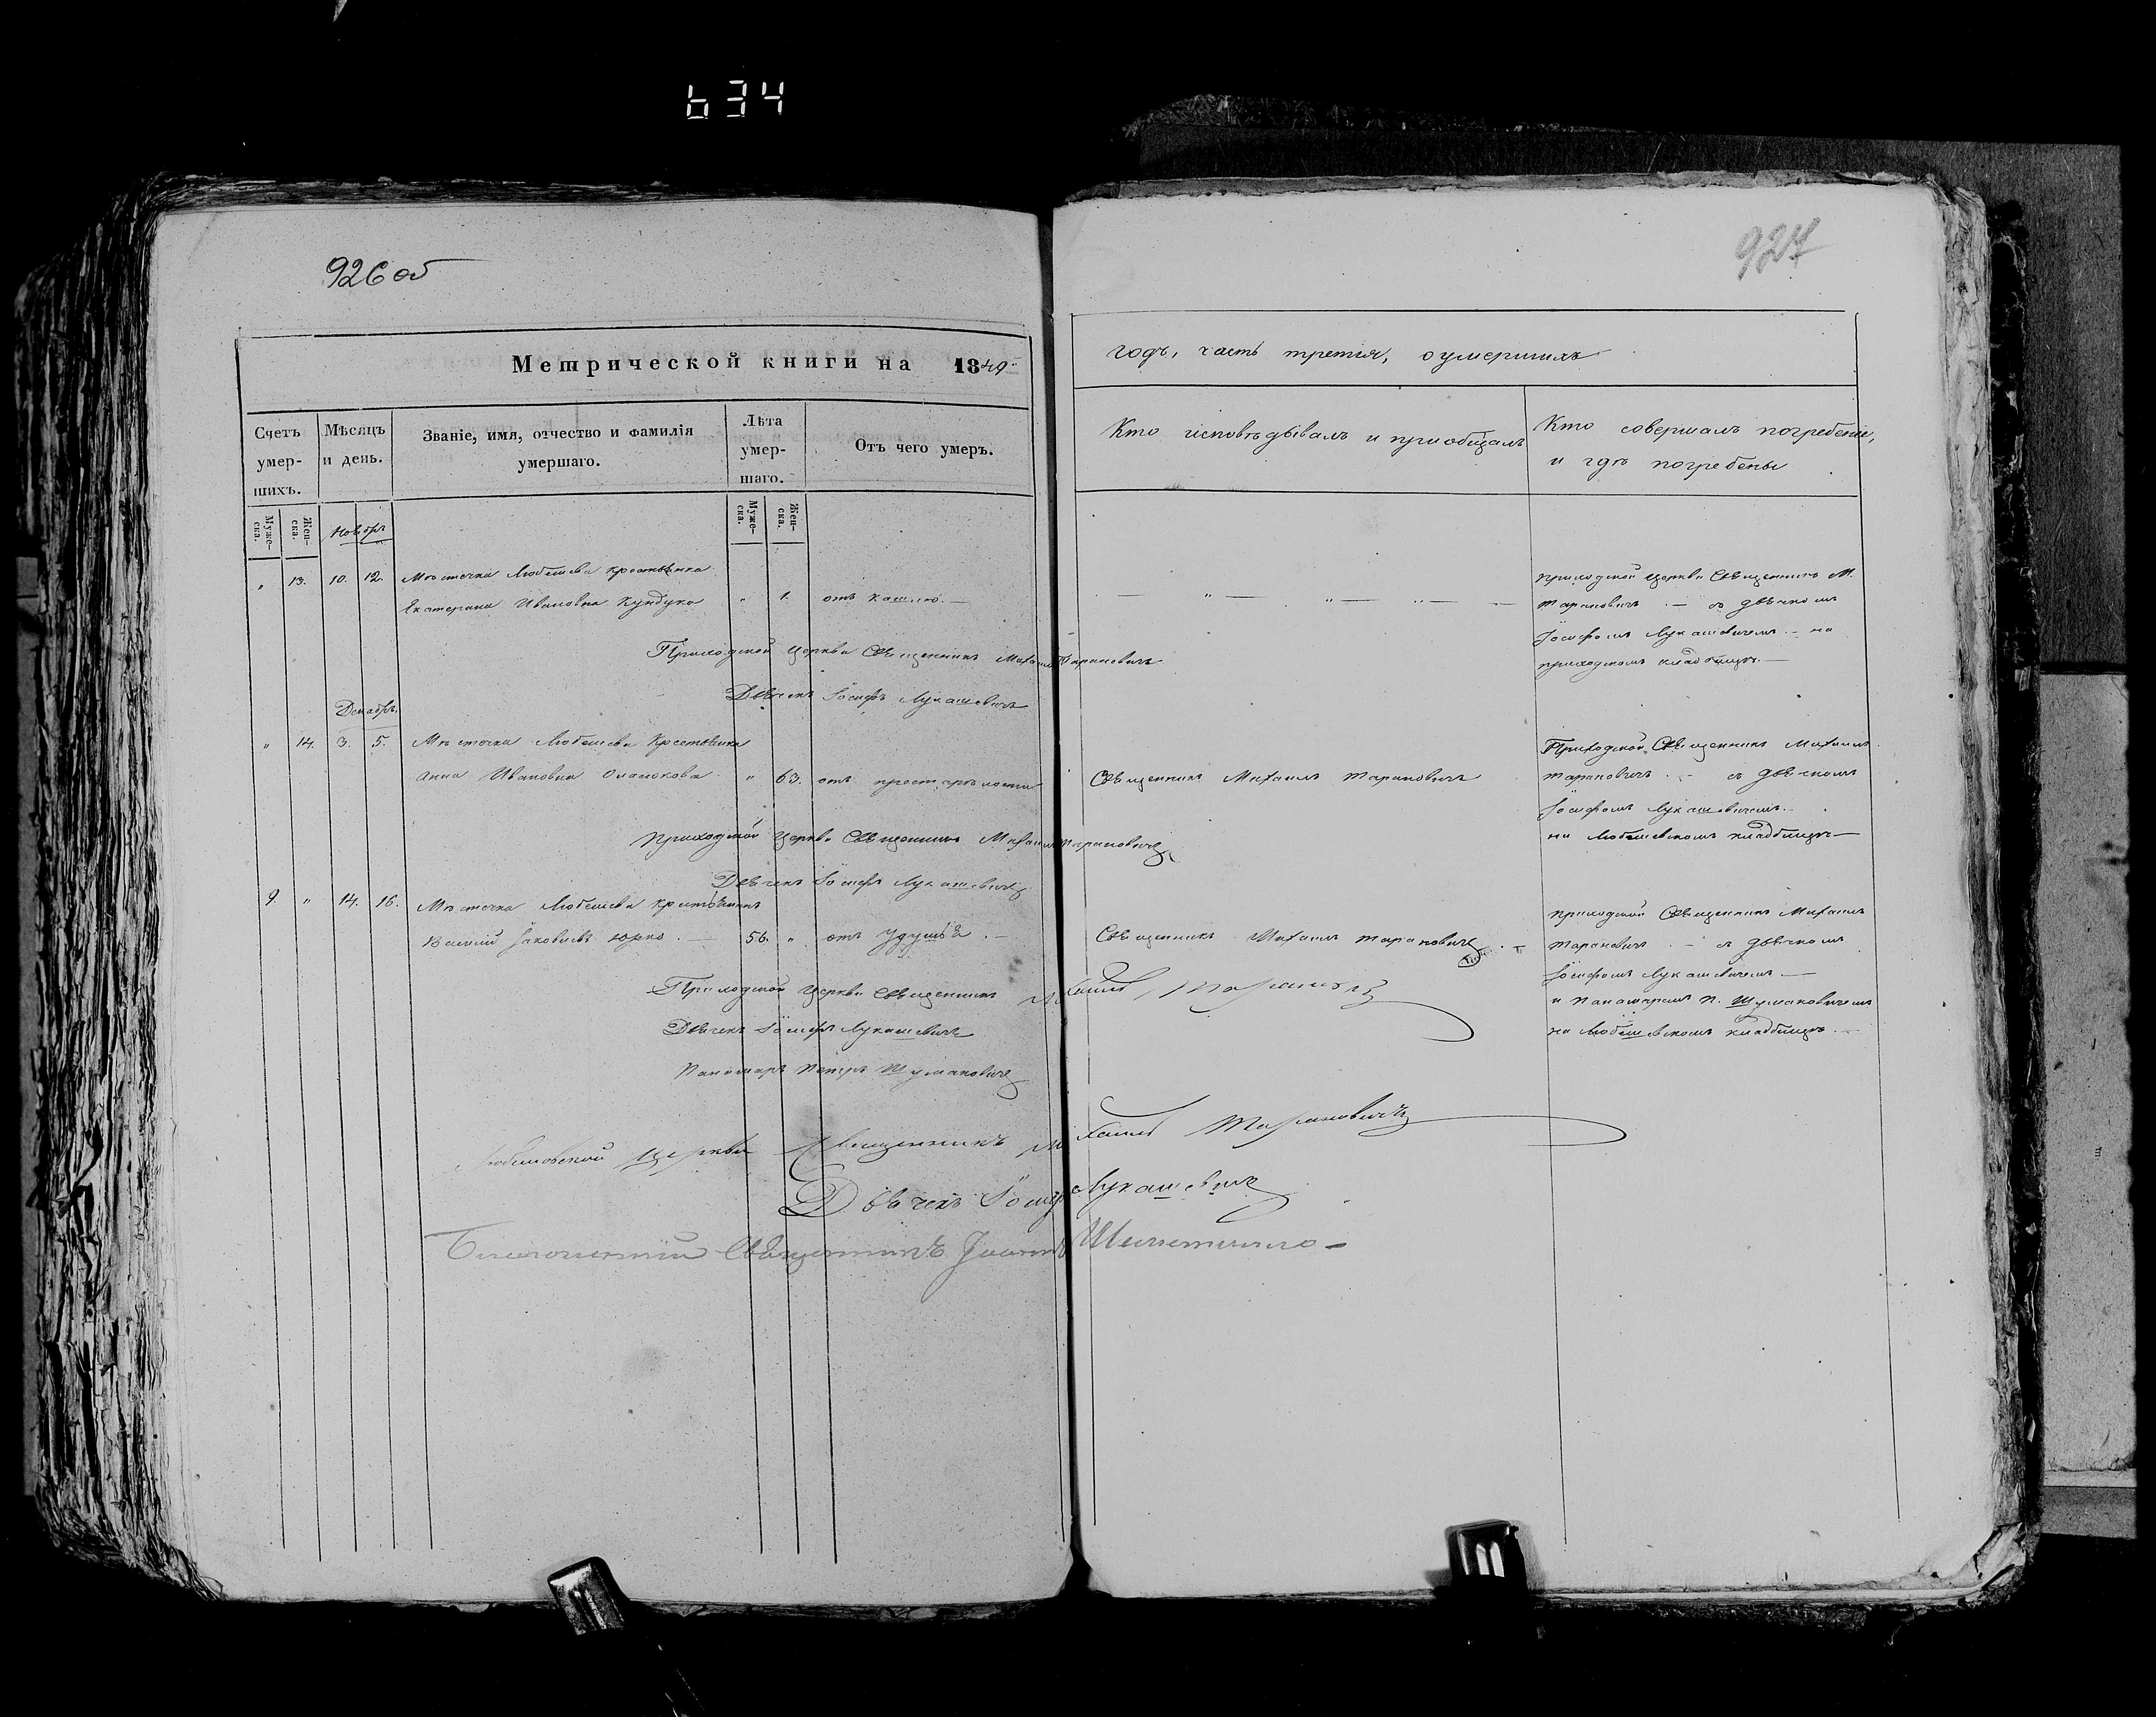 634
926 об
927
Метрической книги на 1849.
годъ, часть третья, о умершихъ
Счетъ умершихъ.
Мѣсяцъ и день.
Званіе, имя, отчество и фамилія умершаго.
Лѣта умершаго.
Отъ чего умеръ.
Кто исповѣдывалъ и приобщалъ
Кто совершалъ погребеніе,
и гдѣ погребены
Мужеска.
Женска.
Мужеска.
Женска.
Ноябрь
" 13. 10. 12. Мѣстечка Любешева крестьянка
Екатерина Ивановна " 1. отъ кашлю. —
приходской церкви Священникъ М.
Тарановичъ. — съ дьячкомъ
Іосифомъ Лукашевичемъ. — на
приходскомъ кладбищѣ. —
Приходской Церкви Священникъ Михаилъ Тарановичъ
Дьячекъ Іосифъ Лукашевичъ
Декабрь.
" 14. 3. 5. Мѣстечка Любешева Крестьянка
Анна Ивановна " 63. отъ престарѣлости
Священникъ Михаилъ Тарановичъ
Приходской Священникъ Михаилъ
Тарановичъ. — съ дьячкомъ
Іосифомъ Лукашевичемъ. —
на Любешевскомъ кладбищѣ —
Приходской Церкви Священникъ Михаилъ Тарановичъ
Дьячекъ Іосифъ Лукашевичъ
9. " 14. 16. Мѣстечка Любешева крестьянинъ
Василій Іаковлевъ Юрко. — 56. " отъ удушья. —
Священникъ Михаилъ Тарановичъ. —
приходской Священникъ Михаилъ
Тарановичъ. — съ дьячкомъ
Іосифомъ Лукашевичемъ —
и панамаремъ П. Шумаковичемъ
на Любешевскомъ кладбищѣ. —
Приходской Церкви Священникъ Михаилъ Тарановичъ
Дьячекъ Іосифъ Лукашевичъ
Панамарь Петръ Шумаковичъ
Любешовской Церкви Священникъ Михаилъ Тарановичъ
Дьячекъ Іосифъ Лукашевичъ
Благочинный Священникъ Іоаннъ